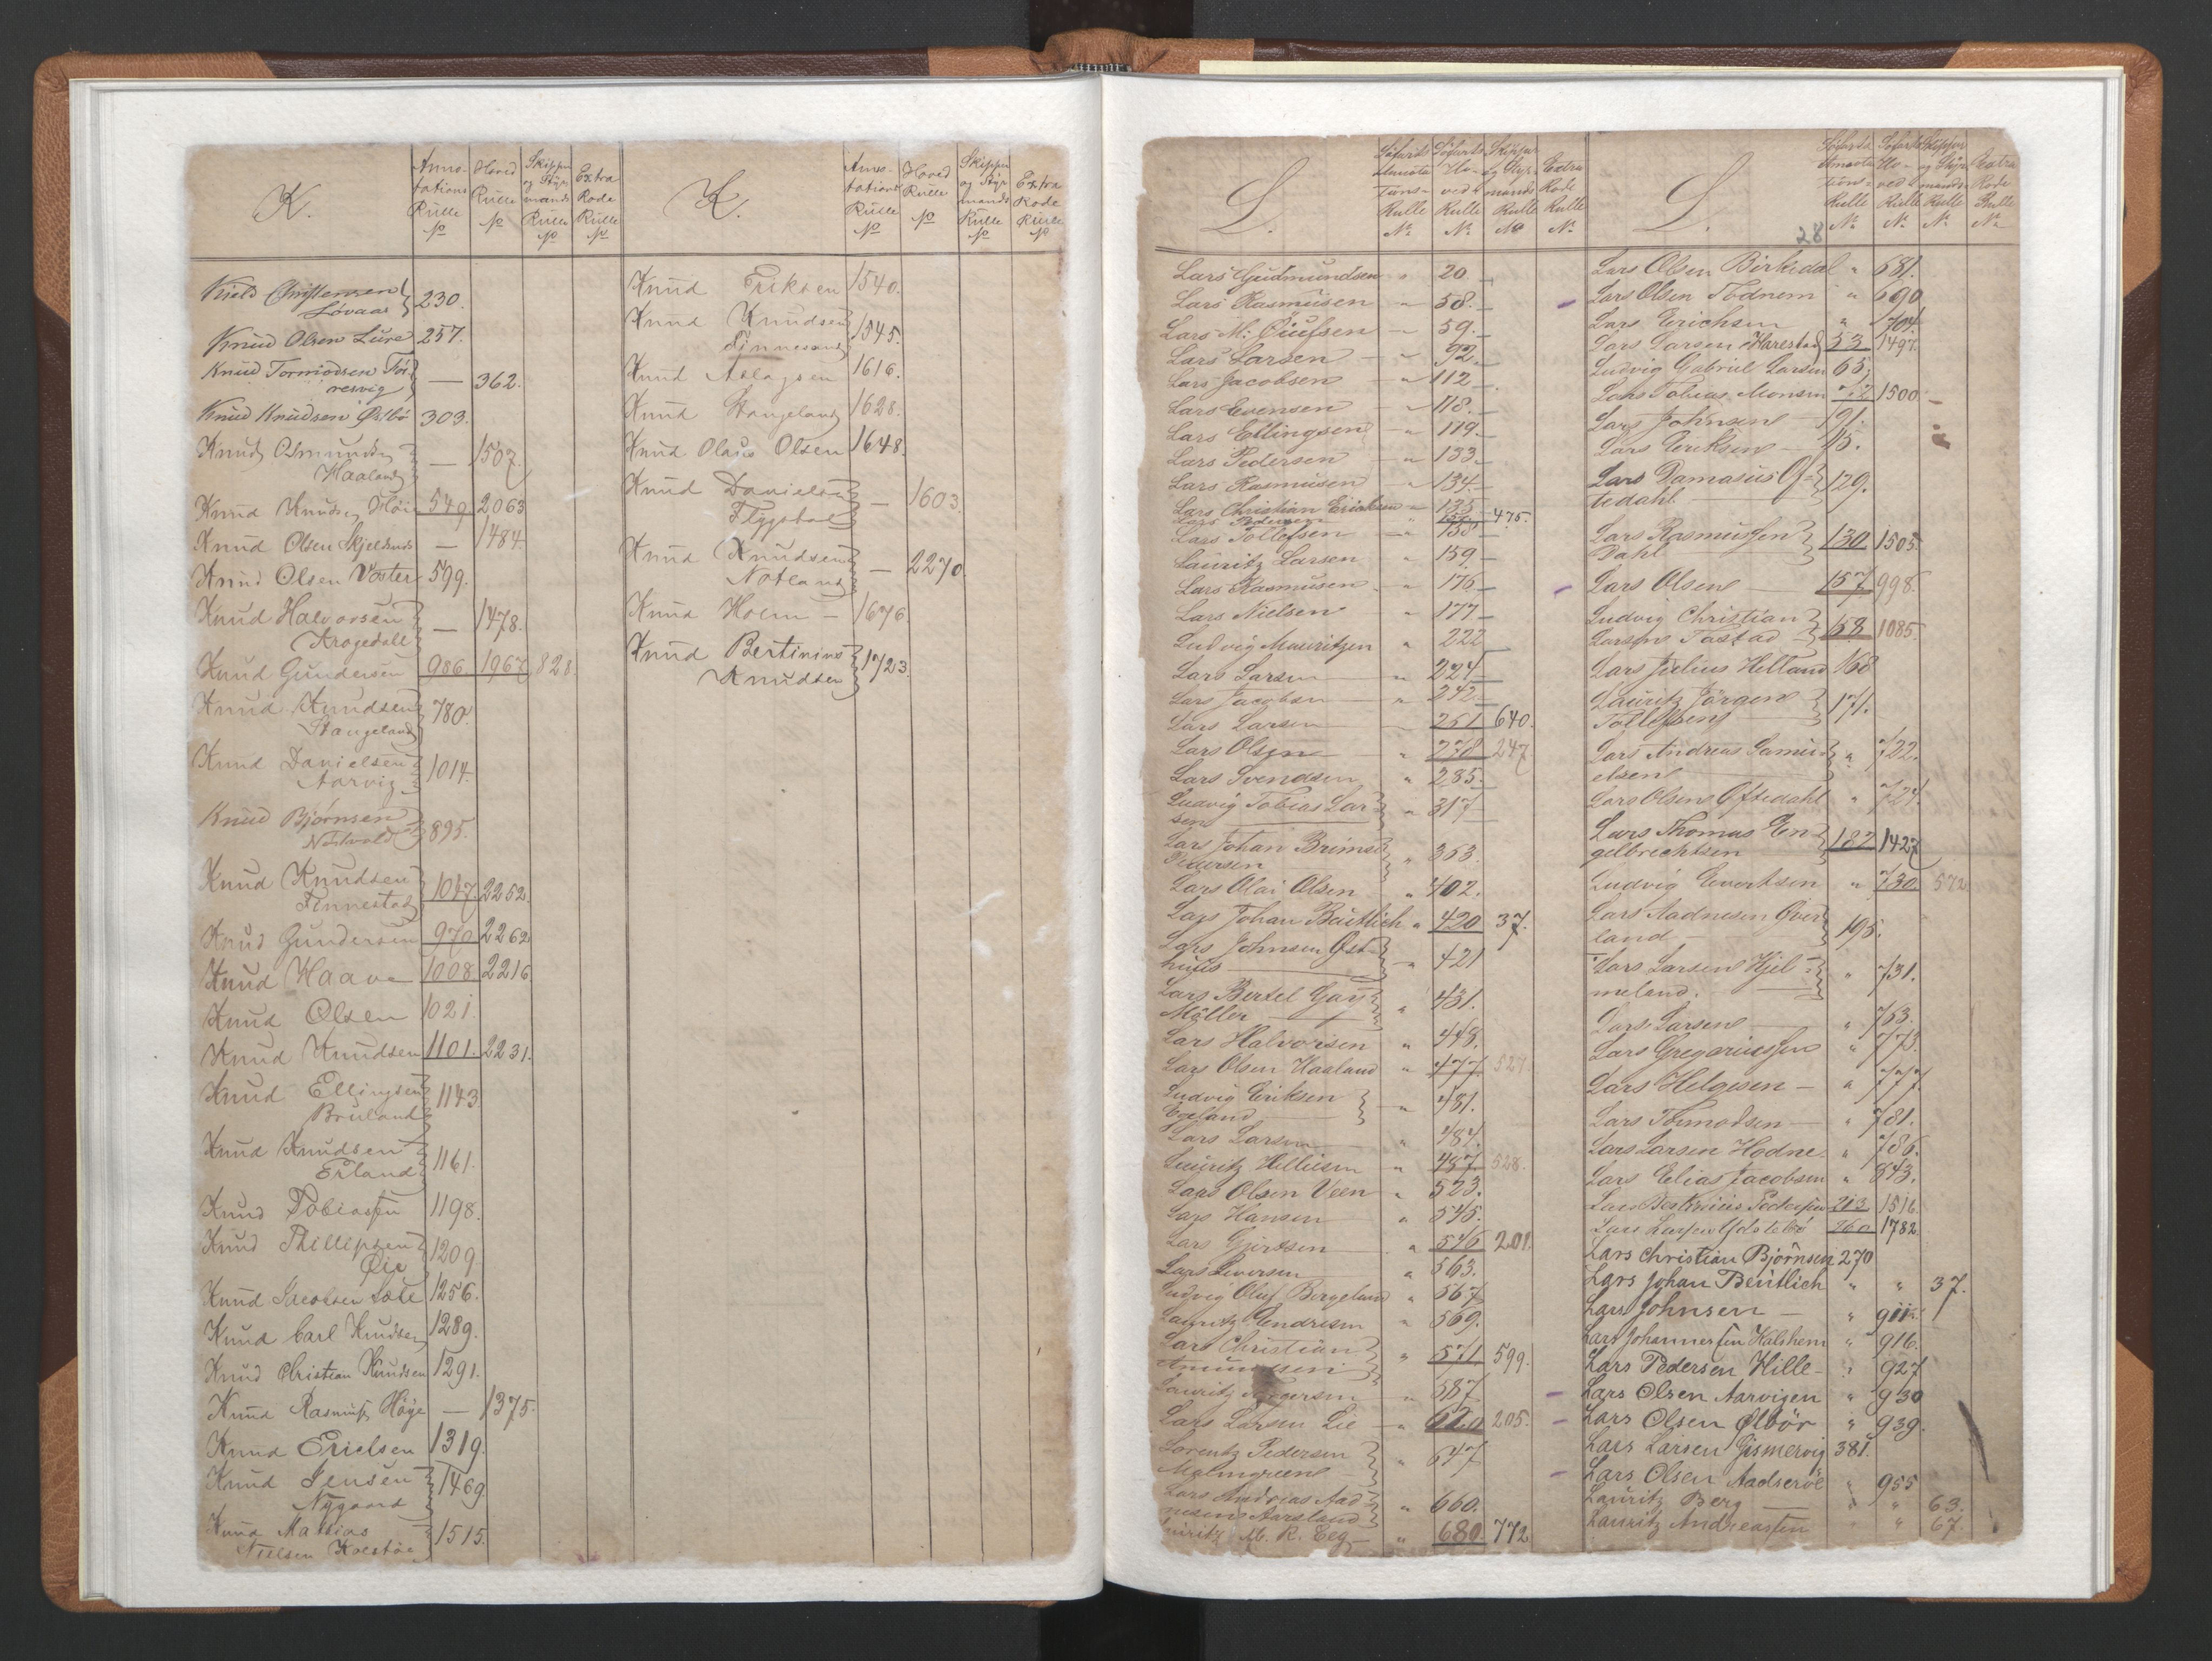 K.
Anno-
tations
Rulle
№
Hoved
Rulle
№
Skipper
og Styr
mands
Rulle
№
Extra
Rode
Rulle
№
Kield Christensen
Løvaas 230.
Knud Olsen Lure 257.
Knud Tormodsen Tøt
resvig — 362.
Knud Knudsen Østbø 303.
Knud Osmunds.
Haaland — 1507.
Knud Knuds. Høie 549 2063
Knud Olsen Skjelds — 1484.
Knud Olsen Voster 599.
Knud Halvorsen
Krogedall — 1478.
Knud Gundersen 986. 1967 828
Knud Knudsen
Stangeland 780.
Knud Danielsen
Aarvig 1014.
Knud Bjørnsen
895.
Knud Knudsen
Finnestad 1047. 2252.
Knud Gundersen 970 2262.
Knud Haave 1008. 2216
Knud Olsen 1021.
Knud Knudsen 1101. 2231.
Knud Ellingsen
Bruland 1143
Knud Knudsen
Erland 1161.
Knud Tobiassen 1198.
Knud Phillipsen
Øie 1209
Knud Jacobsen 1256.
Knud Carl Knudsen 1289.
Knud Christian Knudsen 1291.
Knud Rasmuss. Høye — 1375.
Knud Erielsen 1319.
Knud Jensen
Nygaard 1469
Knud Mathias
Nielsen Kolstøe 1515.
K.
Anno-
tations
Rulle
№
Hoved
Rulle
№
Skipper
og Styr
mands
Rulle
№
Extra
Rode
Rulle
№
Knud Eriksen 1540.
Knud Knudsen
Finnesand 1545.
Knud Aslagsen 1616.
Knud Stangeland 1628.
Knud Olaus Olsen 1648.
Knud Danielsen
Flygstad — 1603.
Knud Knudsen
Notland — 2270.
Knud Holm — 1676.
Knud Bertinius
Knudsen 1723.
L.
Søfarts
Annota
tions-
Rulle
№
Søfarts
Ho-
ved
Rulle
№
Skipper
og Styr-
mands
Rulle
№
Extra
Rode
Rulle
№
Lars Gudmundsen " 20.
Lars Rasmusen " 58.
Lars M. Oulsen — 59.
Lars Larsen — " 92.
Lars Jacobsen — " 112.
Lars Evensen — " 118.
Lars Ellingsen — " 119.
Lars Pedersen — " 133.
Lars Rasmusen — " 134.
Lars Christian Ericksen " 135
Lars Pedersen " 475.
Lars Tollefsen — " 158
Lauritz Larsen " 159.
Lars Rasmusen " 176
Lars Nielsen " 177
Ludvig Mauritzen " 222
Lars Larsen — " 224
Lars Jacobsen " 242
Lars Larsen — 251 640.
Lars Olsen " 278 247
Lars Svendsen " 285.
Ludvig Tobias Lar
sen " 317
Lars Johan Brimse
Pedersen " 353.
Lars Olai Olsen " 402.
Lars Johan Beutlich " 420 37.
Lars Johnsen Øst
huus " 421
Lars Bertel Gay
Møller " 431.
Lars Halvorsen " 448.
Lars Olsen Haaland " 477. 527.
Ludvig Eriksen
Egeland " 481.
Lars Larsen " 484.
Lauritz Helliesen " 487. 528.
Lars Olsen Veen " 523.
Lars Hansen " 545.
Lars Gjertsen " 546 201.
Lars Iversen " 563.
Ludvig Oluf Bergeland " 567.
Lauritz Endresen " 569.
Lars Christian
Amundsen " 571 599.
Lauritz Torgersen " 587
Lars Larsen Lie " 620 205.
Lorentz Pedersen
Malmgreen " 647
Lars Andreas Aad
nesen Aarsland " 660.
Lauritz M. R. Eeg " 680. 772
L.
28
Søfarts
Annota
tions-
Rulle
№
Søfarts
Ho-
ved
Rulle
№
Skipper
og Styr
mands
Rulle
№
Extra
Rode
Rulle
№
Lars Olsen Birkedal " 681.
Lars Olsen Todnem " 690
Lars Erichsen " 704.
Lars Larsen Harestad 53 1497.
Ludvig Gabriel Larsen 63.
Lars Tobias Monsen 72 1500
Lars Johnsen — 91.
Lars Eriksen — 95.
Lars Damasius Of-
tedahl 129.
Lars Rasmussen
Dahl 130 1505.
Lars Olsen — 157 998.
Ludvig Christian
Larsen Tastad 158 1085.
Lars Julius Helland 168
Lauritz Jørgen
Tollefsen 171.
Lars Andreas Samu
elsen " 722.
Lars Olsen Oftedahl " 724.
Lars Thomas En
gelbrechtsen 187 1427
Ludvig Evertsen " 730 572
Lars Aadnesen Qver
land 195.
Lars Larsen Hjel-
meland. " 731.
Lars Larsen " 763.
Lars Gregoriussen " 773.
Lars Helgesen — " 777.
Lars Tormodsen — " 781.
Lars Larsen Hodne. " 786.
Lars Elias Jacobsen " 843.
Lars Bertinius Pedersen 213 1516.
Lars Larsen 260 1782.
Lars Christian Bjørnsen 270
Lars Johan Beutlich " " 37.
Lars Johnsen — " 911.
Lars Johannessen Halshem " 916.
Lars Pedersen Hille- " 927
Lars Olsen Aarvigen " 930
Lars Olsen Ølbør " 939.
Lars Larsen Gismervig 381.
Lars Olsen Aadserøe " 955
Lauritz Berg " " 63.
Lauritz Andreassen " " 67.